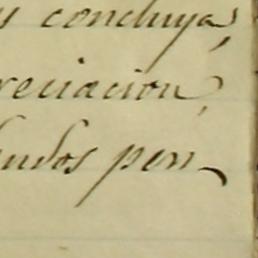 y concluya,
reciacion,
udos por